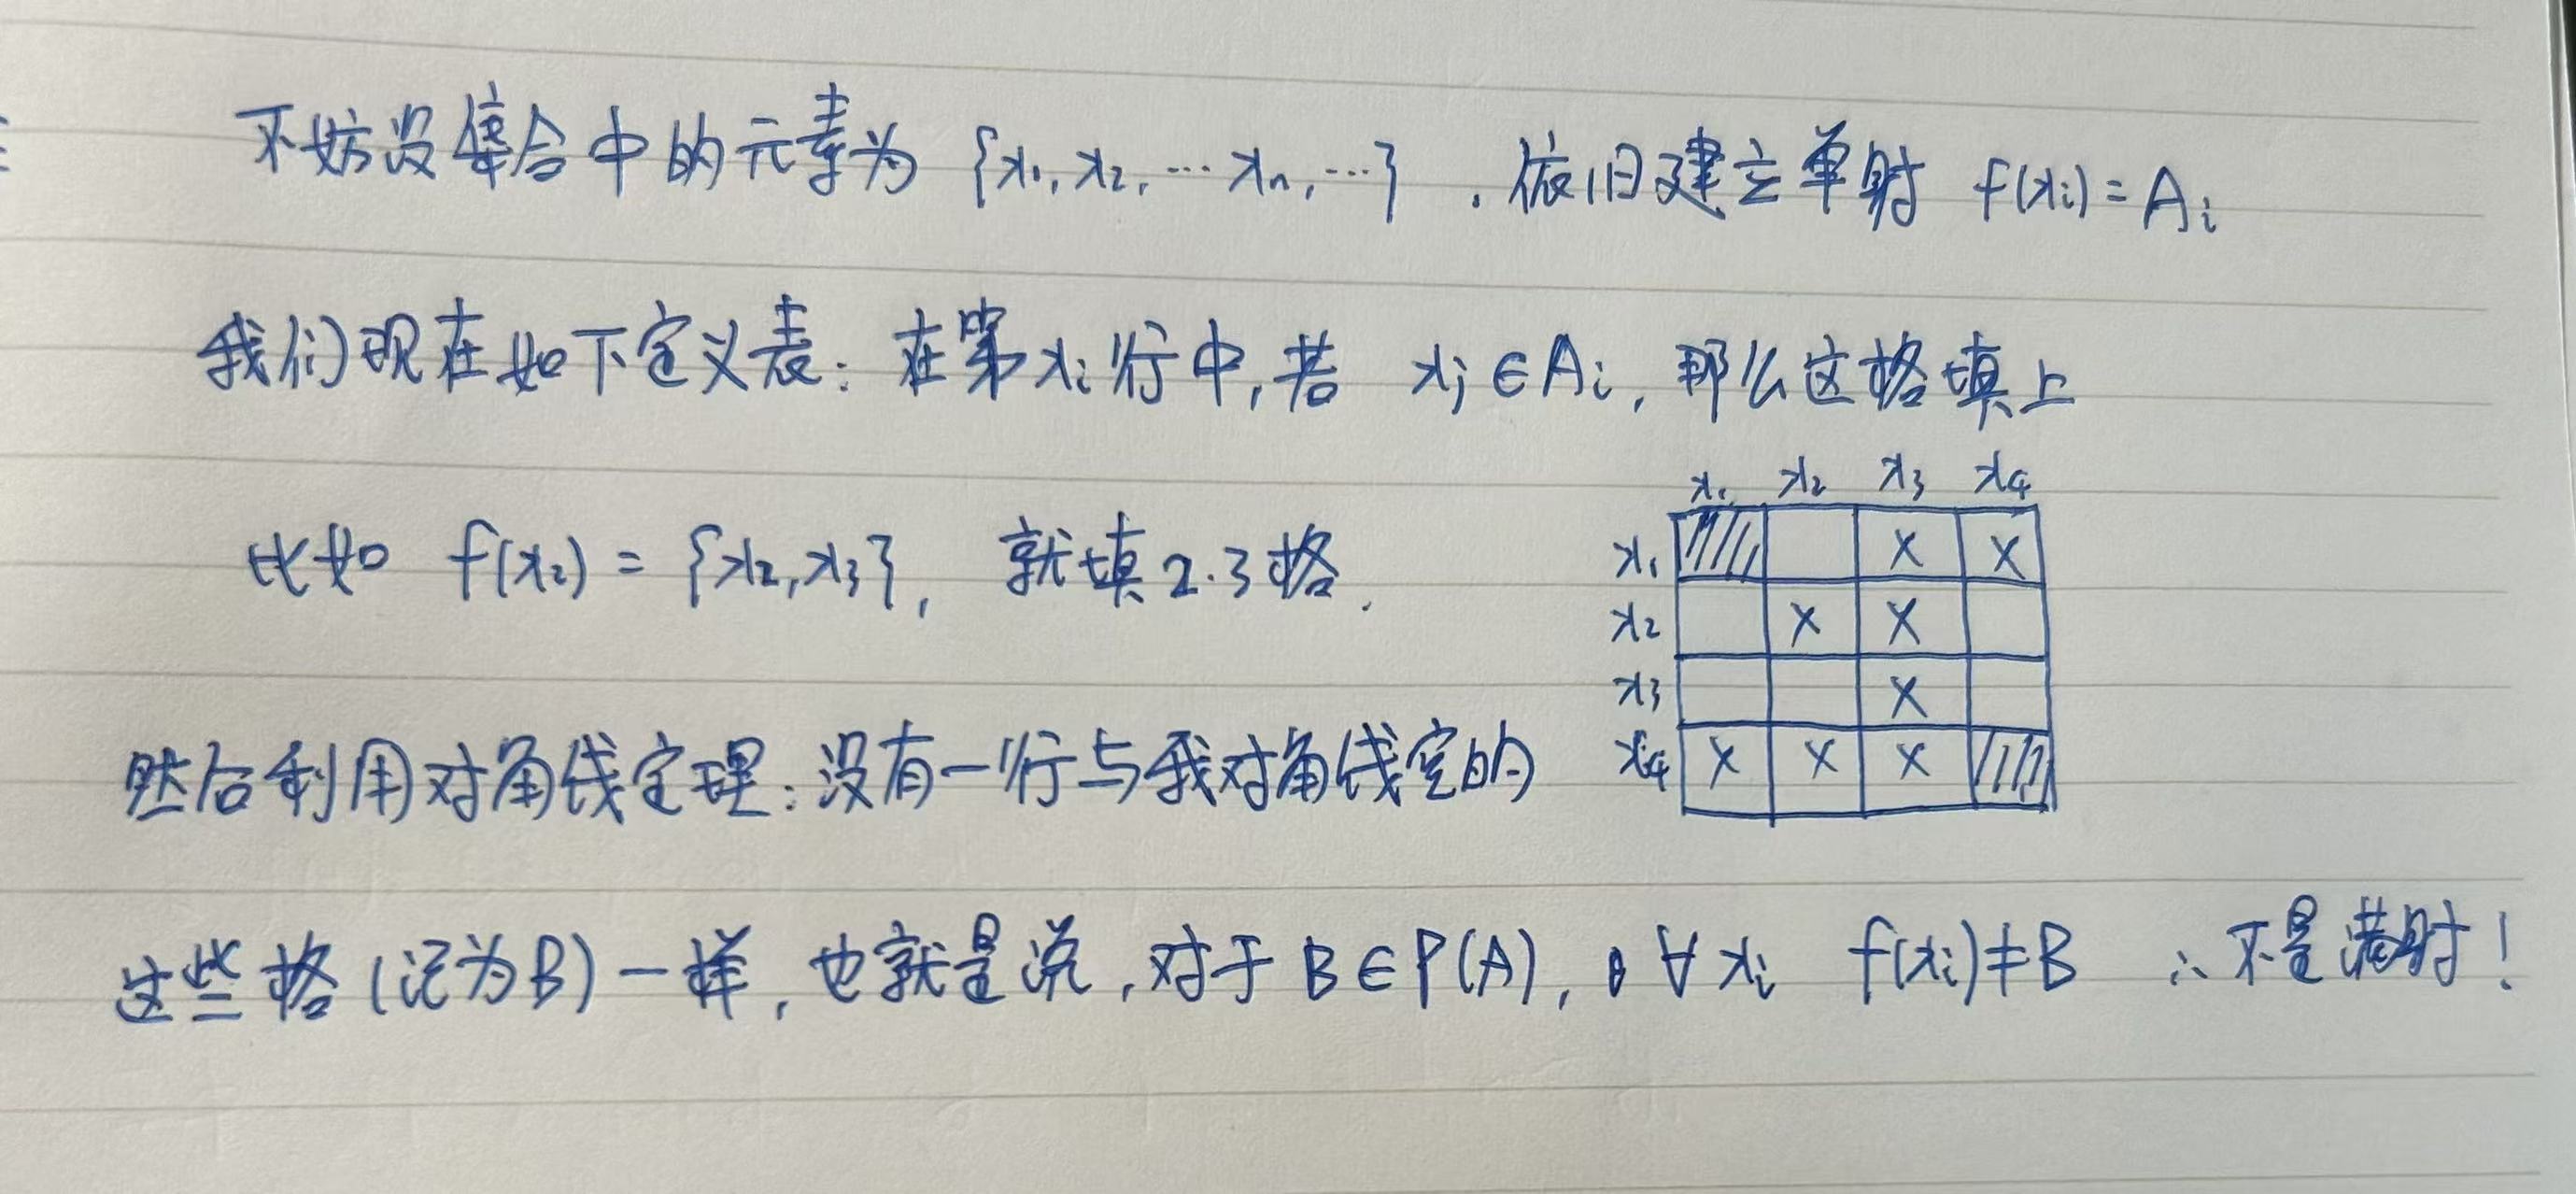 不妨设集合中的元素为 {x₁, x₂, … xₙ, …} . 依旧建立单射 f(xᵢ) = Aᵢ
我们现在如下定义表: 在第 xᵢ 行中, 若 xⱼ ∈ Aᵢ, 那么这格填上
x₁ x₂ x₃ x₄
比如 f(x₂) = {x₂, x₃}, 就填 2.3 格.
x₁ × ×
x₂ × ×
x₃ ×
x₄ × × ×
然后利用对角线定理: 没有一行与我对角线空的
这些格 (记为B) 一样, 也就是说, 对于 B ∈ P(A), ∀ xᵢ f(xᵢ) ≠ B ∴ 不是满射!